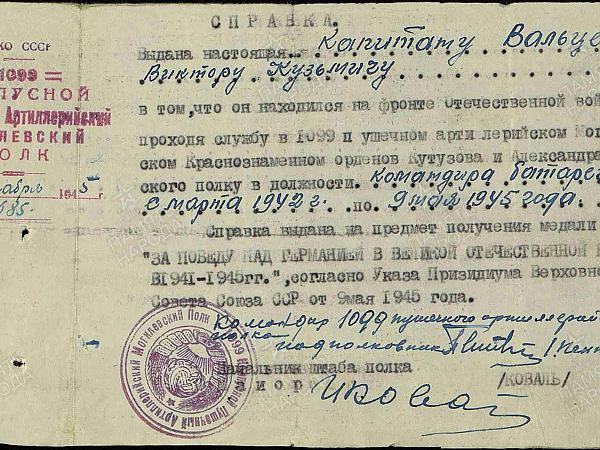 СПРАВКА.
КО СССР
1099
ПУСНОЙ
Артиллерийский
ЛЕВСКИЙ
ОЛК
абрь 194
Выдана настоящая.. Капитату Вальце
Виктору Кузьмичу
в том, что он находился на фронте Отечественной вой
проходя службу в 1099 п ушечном арти лерийском Мог
ском Краснознаменном орденов Кутузова и Александра
ского полку в должности. Командира батаре
с марта 1942 г. по. 9 мая 1945 года.
Справка выдана на предмет получения медали
"ЗА ПОБЕДУ НАД ГЕРМАНИЕЙ В ВЕЛИКОЙ ОТЕЧЕСТВЕННОЙ
В1941-1945гг.", согласно Указа Призидиума Верховно
Совета Союза ССР от 9мая 1945 года.
Командир 1099 пушечного
полка
подполковник
Начальник штаба полка
майор
/КОВАЛЬ/
1099 Корпусной Пушечный Артиллерийский Могилевский Полк